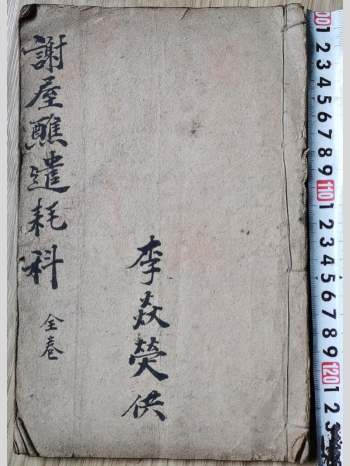 謝屋醮遣耗科
全卷
李焱荧供
100
1
2
3
4
5
6
7
8
9
110
1
2
3
4
5
6
7
8
9
120
1
2
3